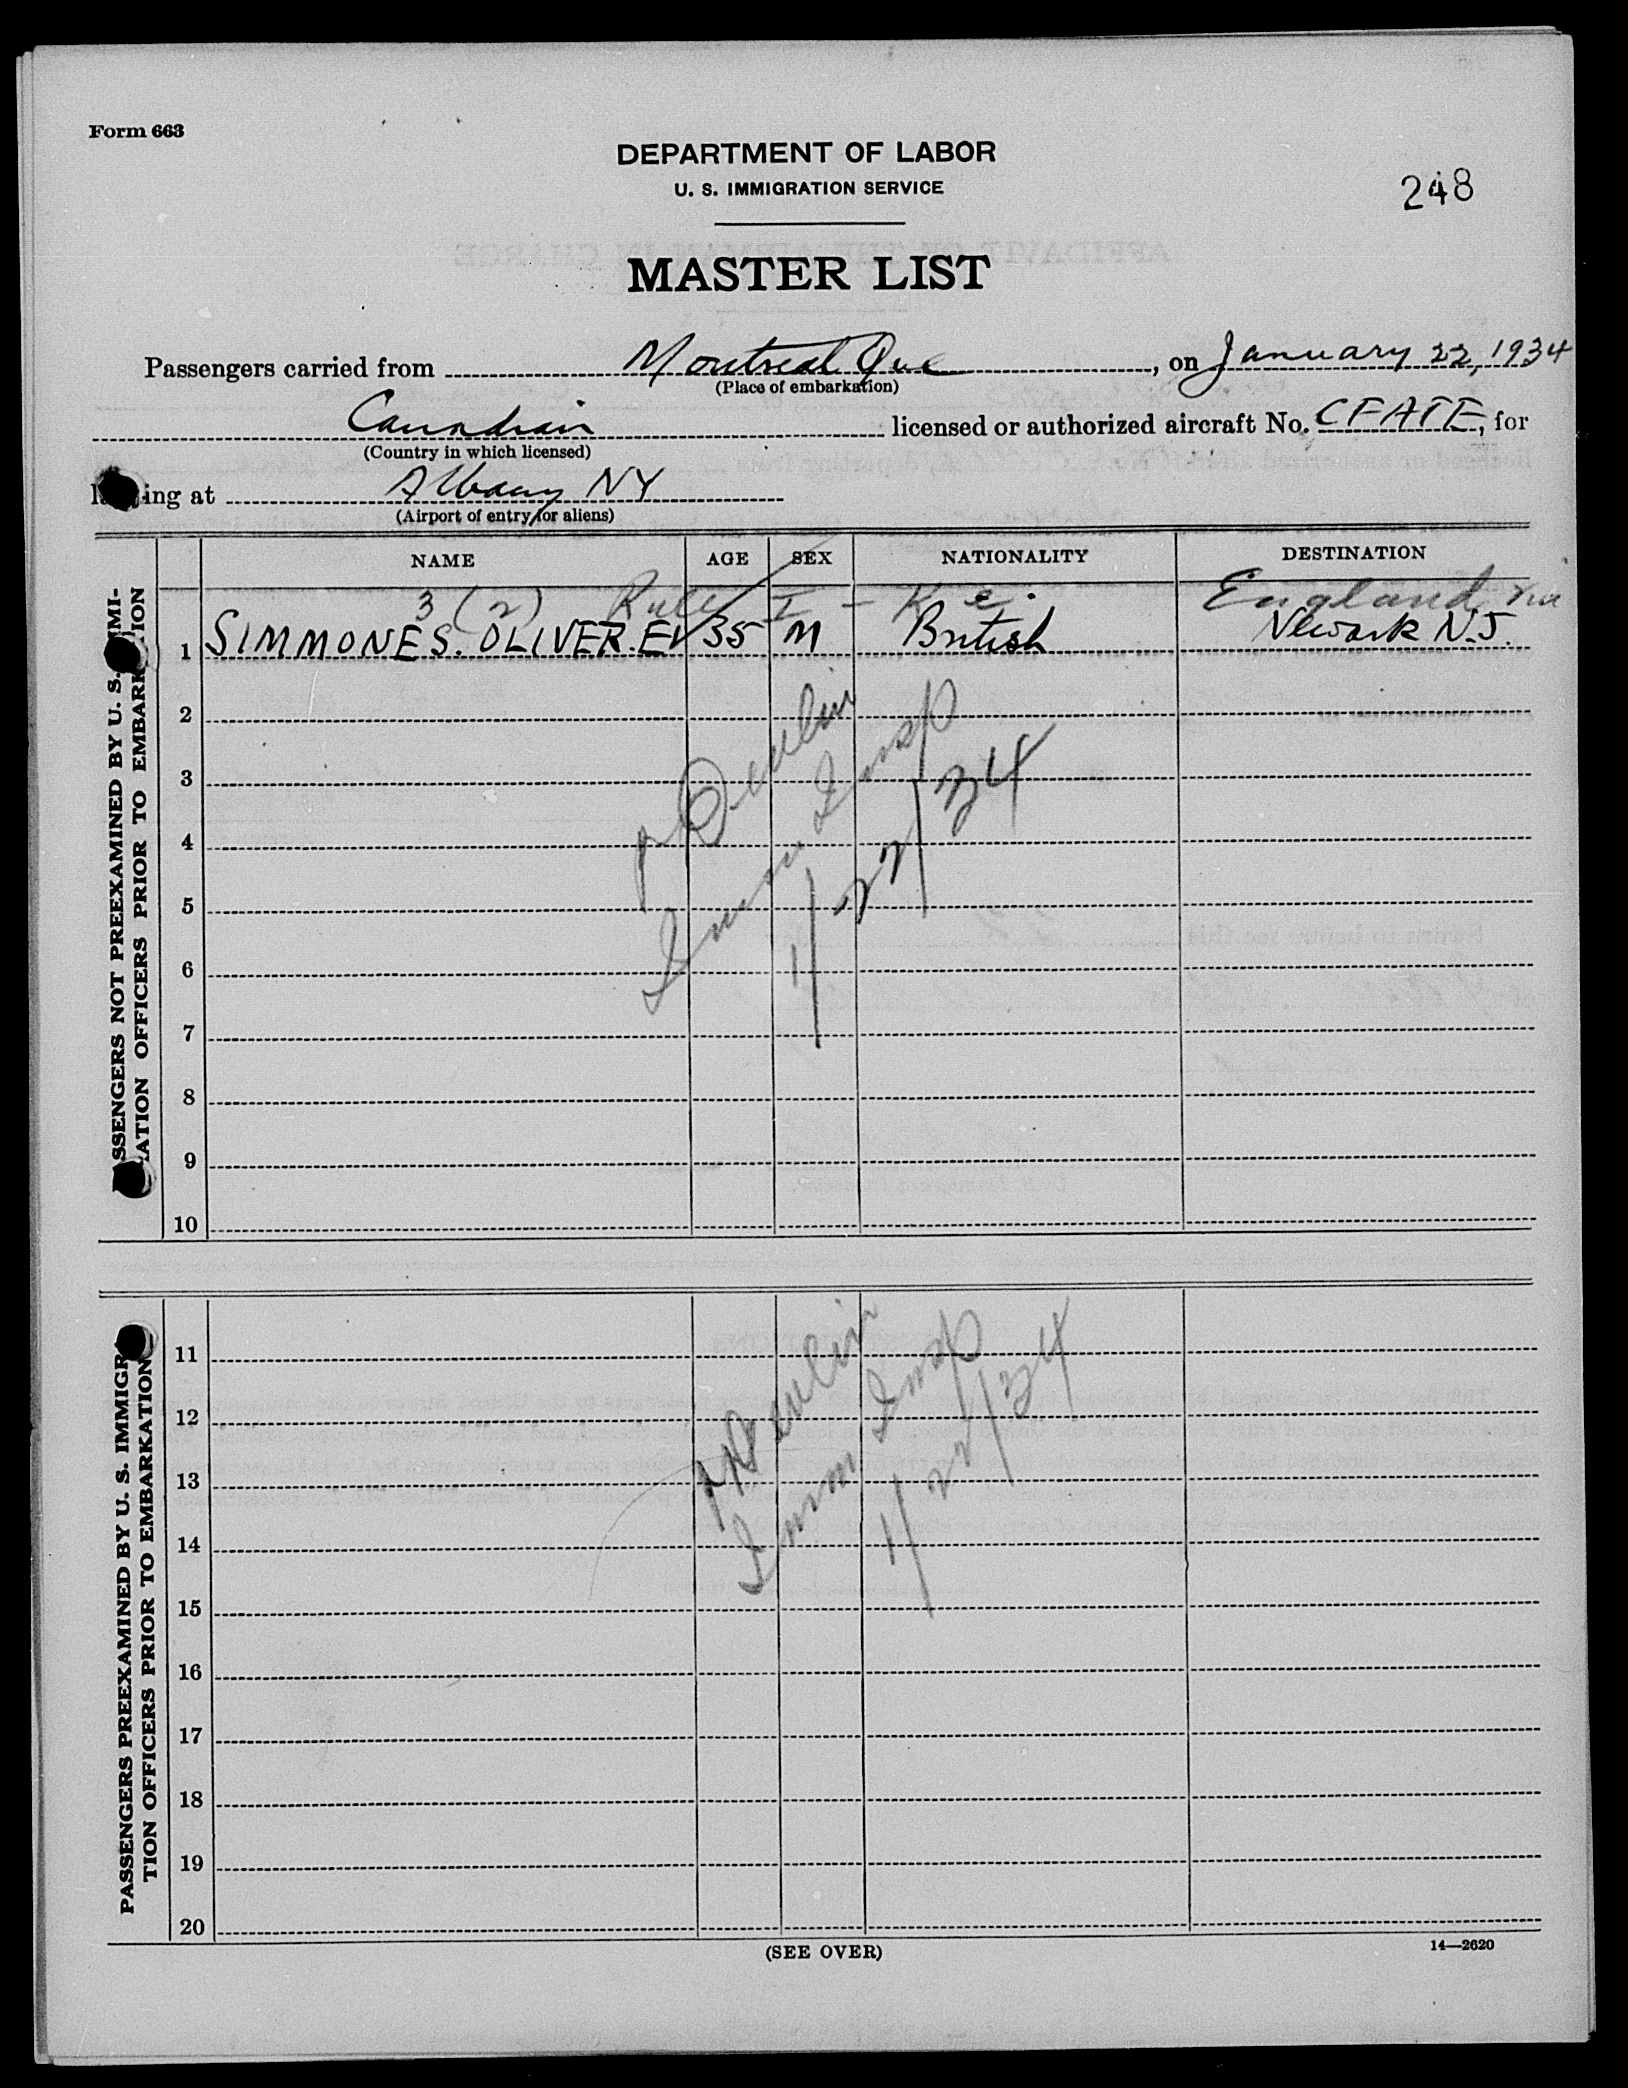 Form 663
DEPARTMENT OF LABOR
U. S. IMMIGRATION SERVICE
248
MASTER LIST
Passengers carried from Montreal Que, on January 22, 1934
(Place of embarkation)
Canadian licensed or authorized aircraft No. CFATE, for
(Country in which licensed)
ing at Albany NY
(Airport of entry for aliens)
NAME AGE SEX NATIONALITY DESTINATION
3 (2) Rule I - K e. England via
1 SIMMONES. OLIVER. EV 35 M British Newark N.J.
2
3
4
5
6
7
8
9
10
SSENGERS NOT PREEXAMINED BY U. S. IMMI-
ATION OFFICERS PRIOR TO EMBARKATION
Immn Insp
1/22/34
11
12
13
14
15
16
17
18
19
20
PASSENGERS PREEXAMINED BY U. S. IMMIGRA
TION OFFICERS PRIOR TO EMBARKATION
Immn Insp
1/22/34
(SEE OVER)
14—2620